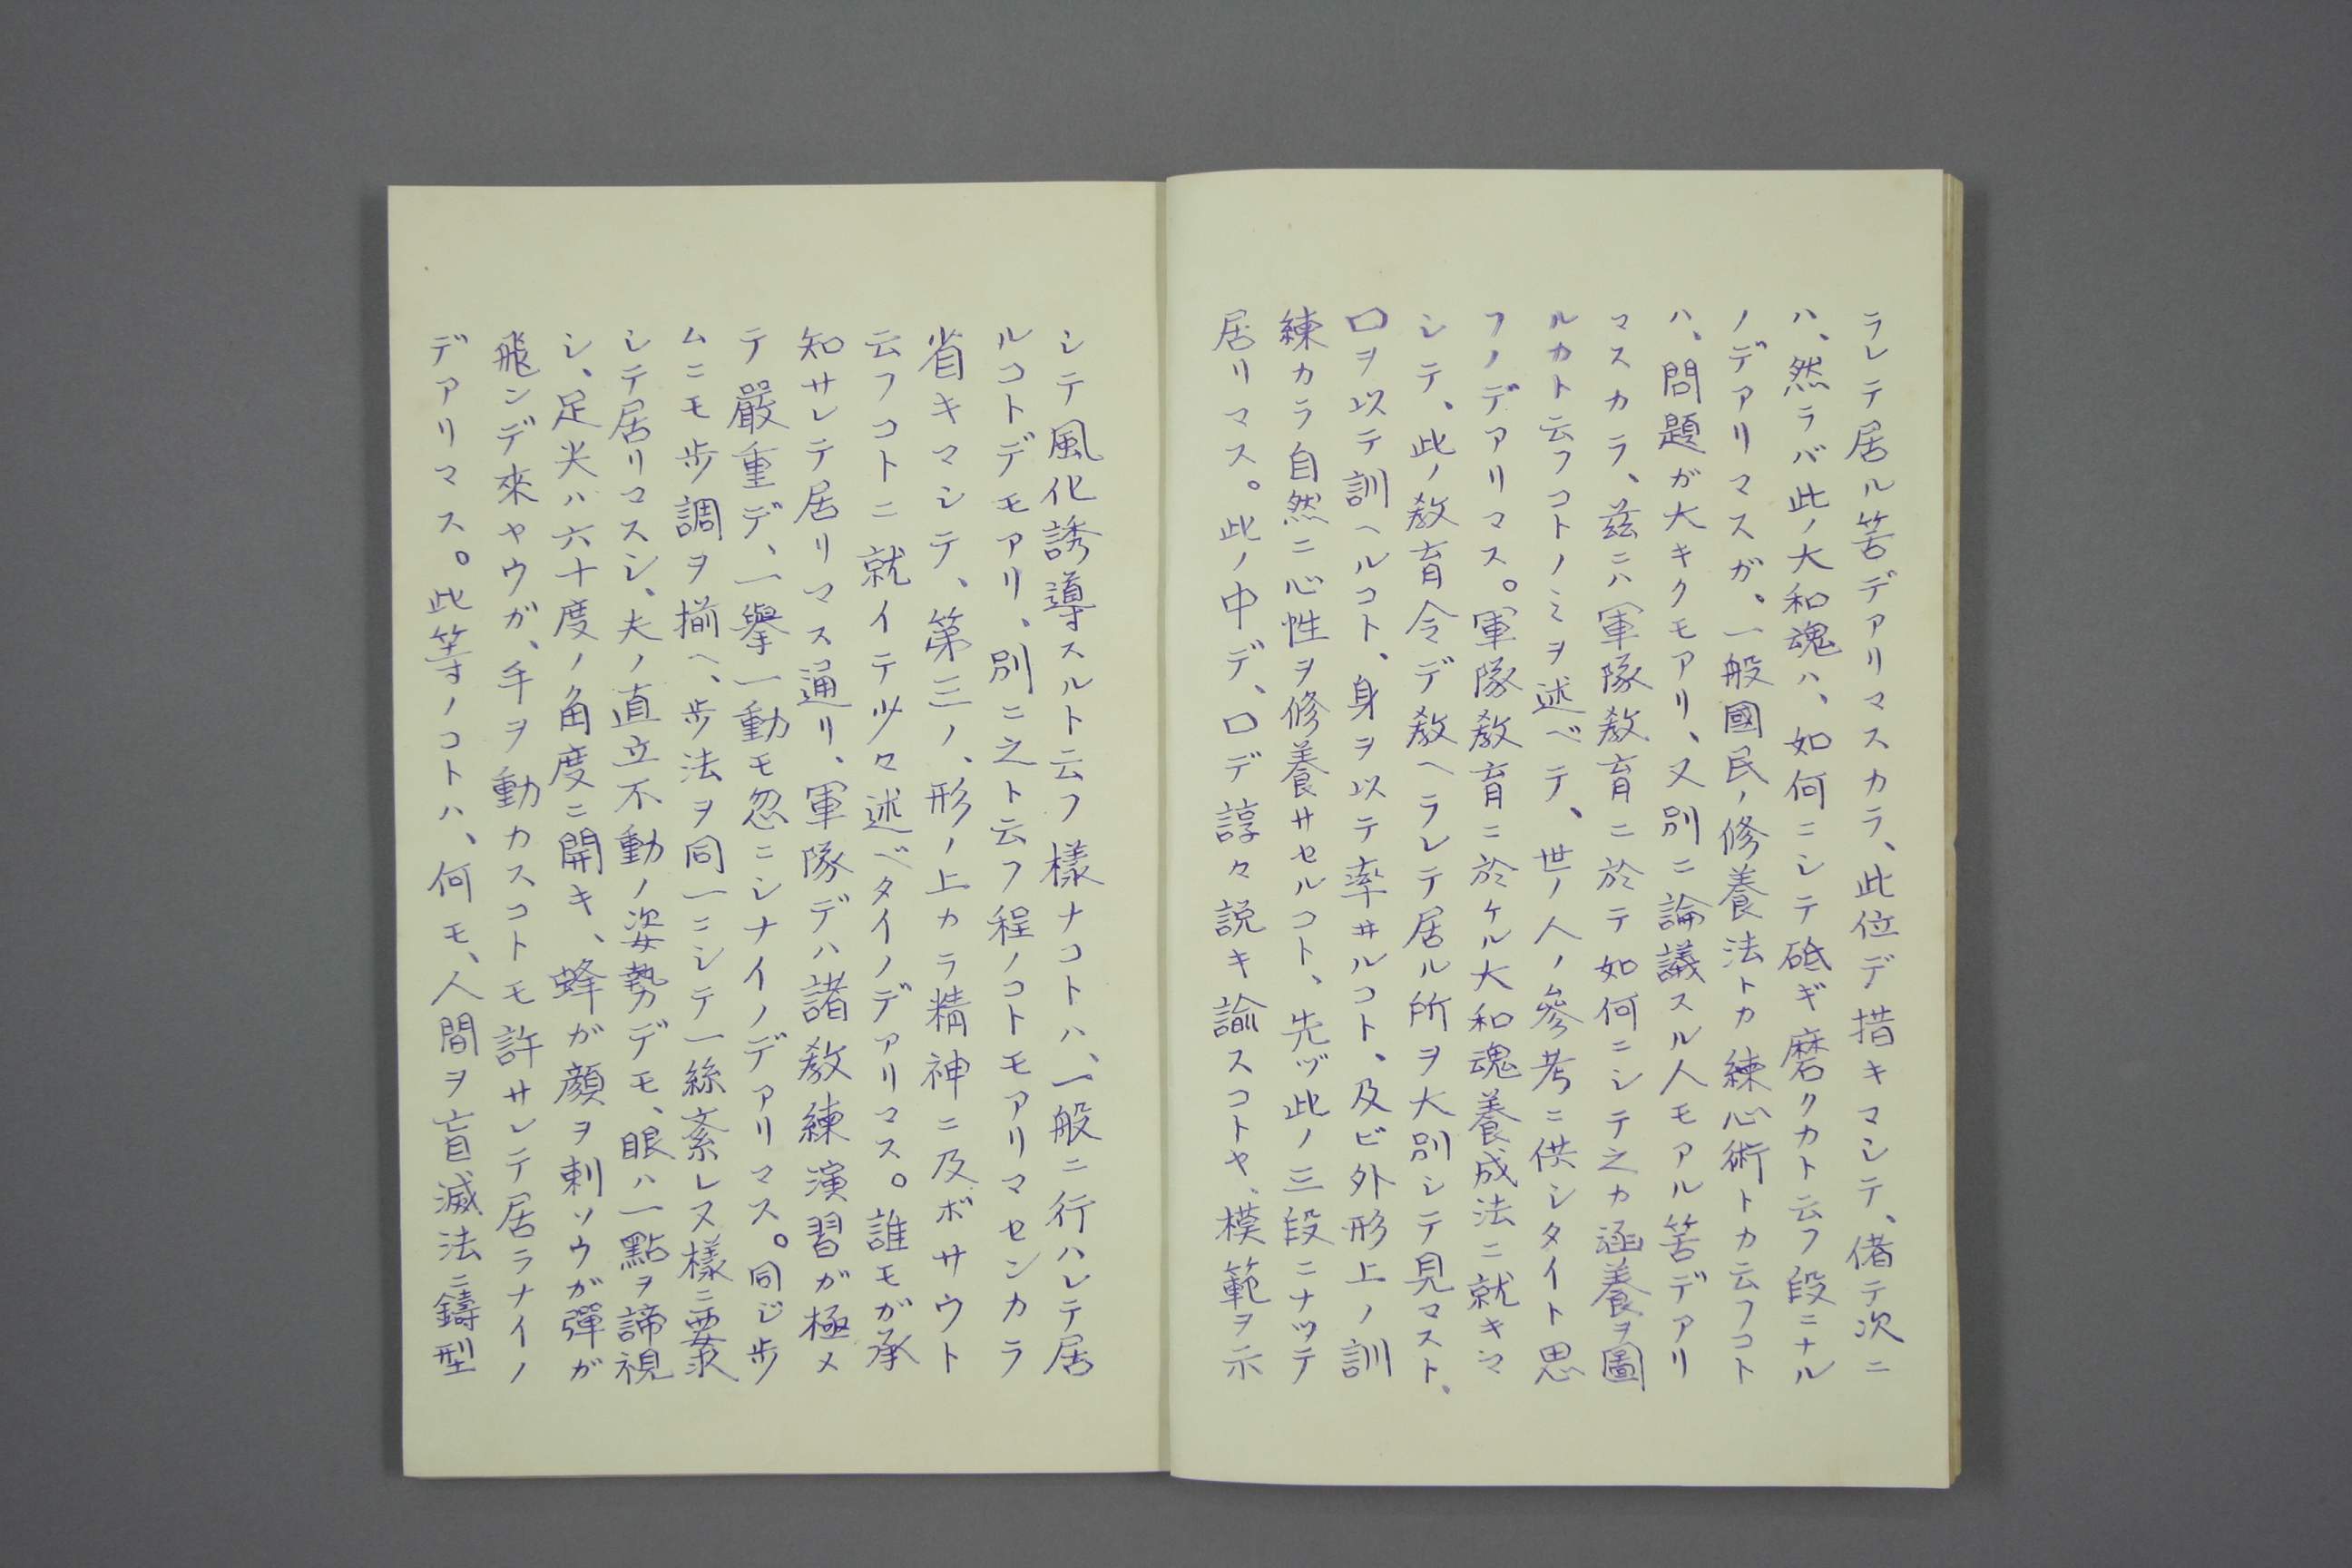 ラレテ居ル筈デアリマスカラ、此位デ措キマシテ、偖テ次ニ
ハ、然ラバ此ノ大和魂ハ、如何ニシテ砥ギ磨クカト云フ段ニナル
ノデアリマスガ、一般國民ノ修養法トカ練心術トカ云フコト
ハ、問題が大キクモアリ、又別ニ論議スル人モアル筈デアリ
マスカラ、茲ニハ軍隊教育ニ於テ如何ニシテ之カ涵養ヲ圖
ルカト云フコトノミヲ述ベテ、世ノ人ノ參考ニ供シタイト思
フノデアリマス。軍隊教育ニ於ケル大和魂養成法ニ就キマ
シテ、此ノ教育令デ教ヘラレテ居ル所ヲ大別シテ見マスト、
口ヲ以テ訓ヘルコト、身ヲ以テ率ヰルコト、及ビ外形上ノ訓
練カラ自然ニ心性ヲ修養サセルコト、先ヅ此ノ三段ニナッテ
居リマス。此ノ中デ、口デ諄々説キ諭スコトヤ、模範ヲ示
シテ風化誘導スルト云フ樣ナコトハ、一般ニ行ハレテ居
ルコトデモアリ、別ニ之ト云フ程ノコトモアリマセンカラ
省キマシテ、第三ノ、形ノ上カラ精神ニ及ボサウト
云フコトニ就イテ少々述ベタイノデアリマス。誰モが承
知サレテ居リマス通リ、軍隊デハ諸教練演習が極メ
テ嚴重デ、一擧一動モ忽ニシナイノデアリマス。同じ歩
ムニモ歩調ヲ揃ヘ、歩法ヲ同一ニシテ一絲紊レヌ樣ニ要求
シテ居リマスシ、夫ノ直立不動ノ姿勢デモ、眼ハ一點ヲ諦視
シ、足尖ハ六十度ノ角度ニ開キ、蜂が顔ヲ刺ソウが彈が
飛ンデ來ヤウが、手ヲ動カスコトモ許サレテ居ラナイノ
デアリマス。此等ノコトハ、何モ、人間ヲ盲滅法ニ鑄型